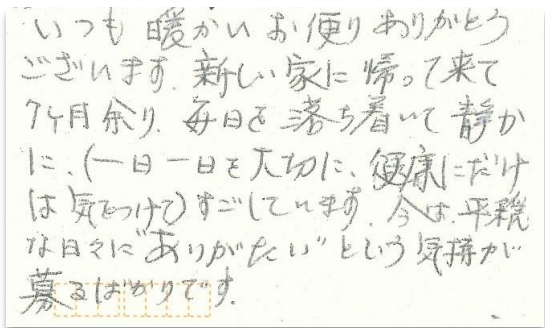 いつも暖かいお便りありがとう
ございます.新しい家に帰って来て
7ヶ月余り.毎日を落ち着いて静か
に、(一日一日を大切に、健康にだけ
は気をつけて)すごしています.今は平穏
な日々に"ありがたい"という気持が
募るばかりです.